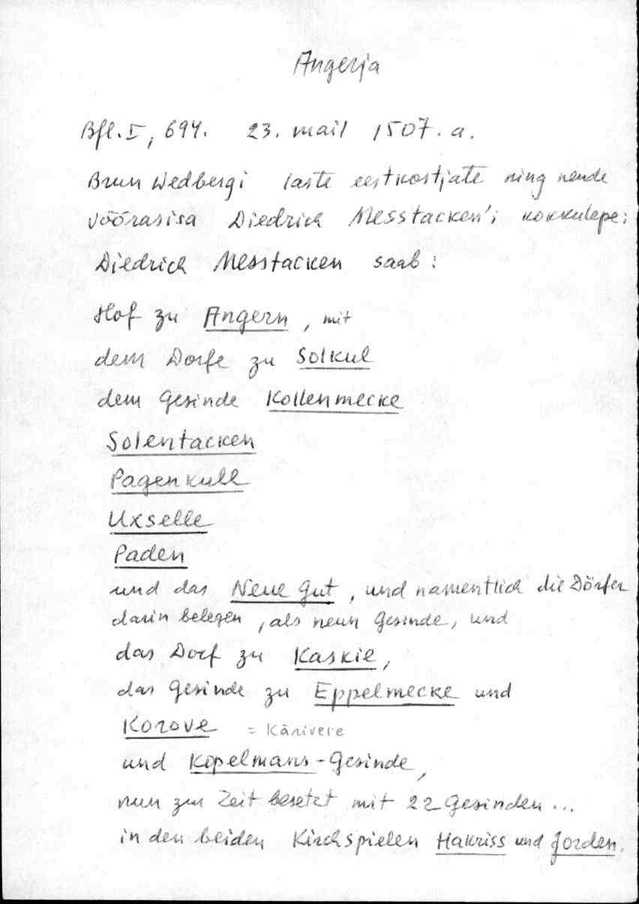 Angerja
Bfl. I, 694. 23. mail 1507. a.
Brun Wedbergi laste eestkostjate ning nende
võõrasisa Diedrich Messtacken'i kokkulepe:
Diedrich Messtacken saab:
Hof zu Angern, mit
dem Dorfe zu Solkul
dem Gesinde Kollenmecke
Solentacken
Pagenkull
Uxselle
Paden
und das Neue Gut, und namentlich die Dörfer
darin belegen, als neun Gesinde, und
das Dorf zu Kaskie,
das Gesinde zu Eppelmecke und
Korove = Kärivere
und Kopelmans-Gesinde,
nun zur Zeit besetet mit 22 Gesinden...
in den beiden Kirchspielen Hakriss und Jorden.